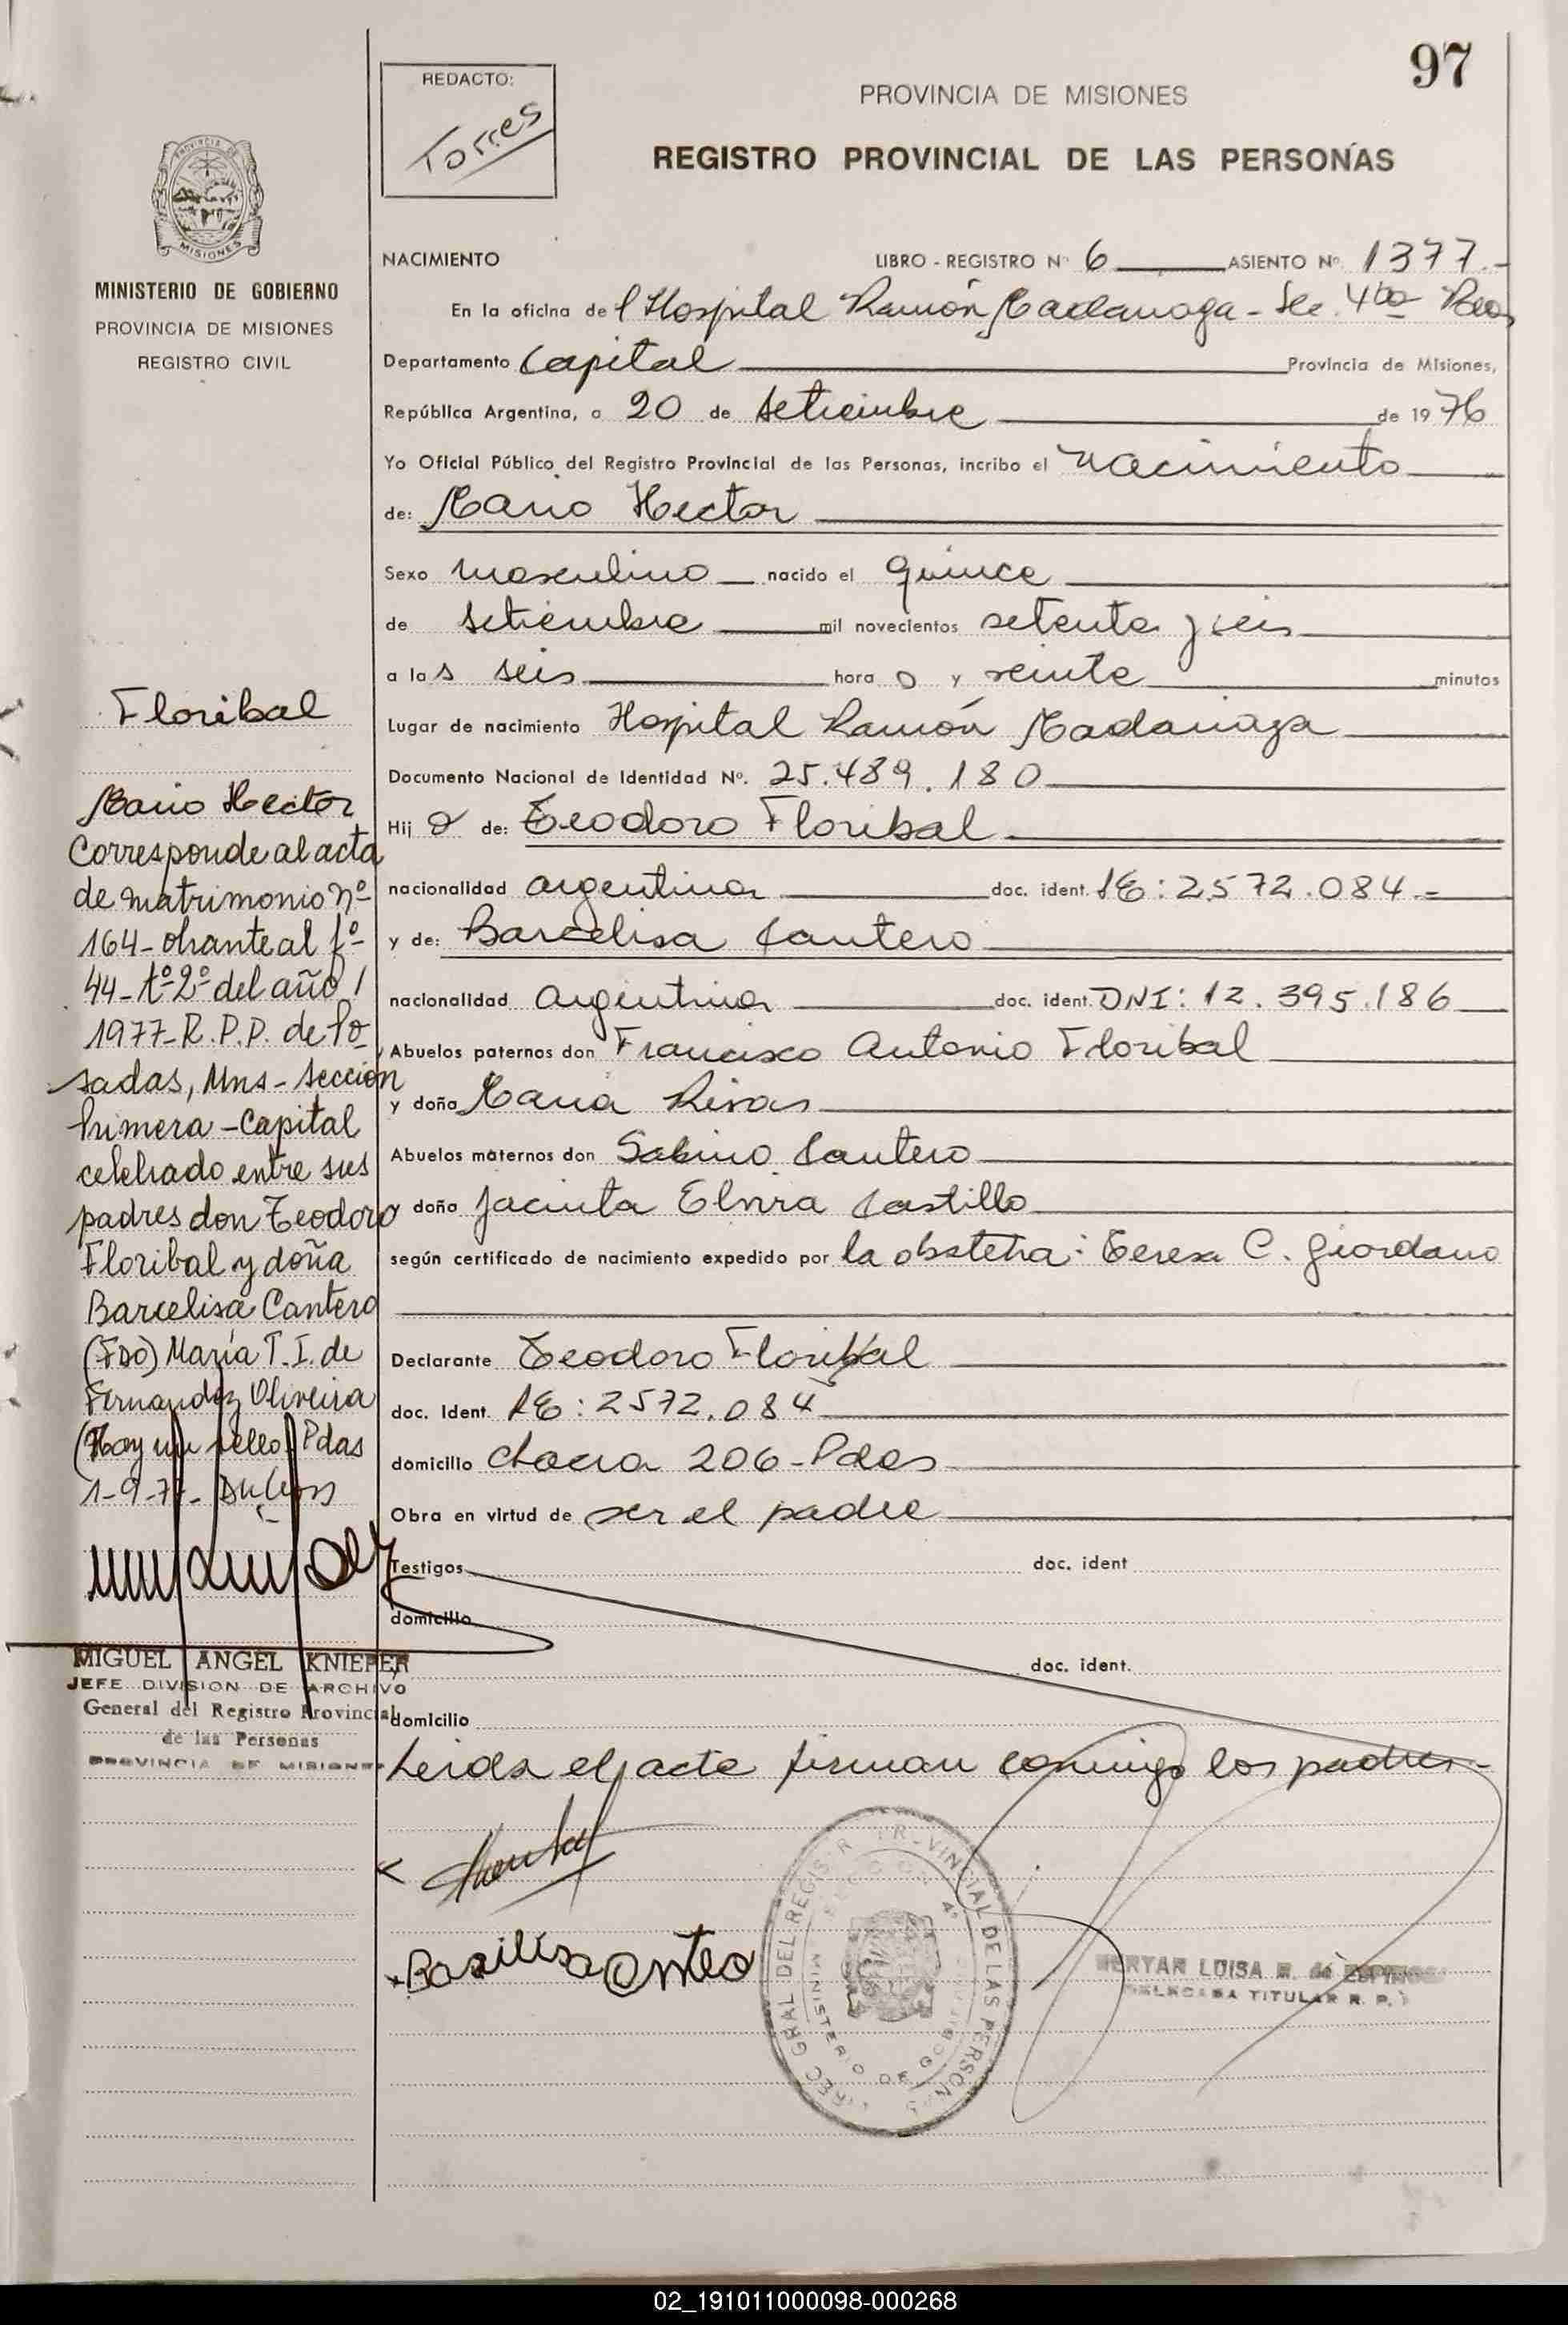 97
REDACTO:
Torres
PROVINCIA DE MISIONES
REGISTRO PROVINCIAL DE LAS PERSONAS
MISIONES
MINISTERIO DE GOBIERNO
PROVINCIA DE MISIONES
REGISTRO CIVIL
NACIMIENTO LIBRO - REGISTRO Nº 6 ASIENTO Nº 1377.-
En la oficina del Hospital Ramón Madariaga - Sec. 4ta Pdas
Departamento Capital Provincia de Misiones,
República Argentina, a 20 de Setiembre de 1976
Yo Oficial Público del Registro Provincial de las Personas, incribo el nacimiento
de: Mario Hector
Sexo masculino nacido el quince
de setiembre mil novecientos setenta y seis
a las seis hora s y veinte minutos
Lugar de nacimiento Hospital Ramón Madariaga
Documento Nacional de Identidad Nº. 25.489.180
Hij o de: Teodoro Floribal
nacionalidad argentina doc. ident. LE: 2572.084.=
y de: Barcelisa Cantero
nacionalidad argentina doc. ident. DNI: 12.395.186
Abuelos paternos don Francisco Antonio Floribal
y doña Maria Rivas
Abuelos maternos don Sabino Cantero
y doña Jacinta Elvira Castillo
según certificado de nacimiento expedido por la obstetra: Teresa C. Giordano
Declarante Teodoro Floribal
doc. Ident. LE: 2572.084
domicilio Chacra 206 - Pdas
Obra en virtud de ser el padre
Testigos doc. ident
domicilio
doc. ident.
domicilio
Leida el acta firman conmigo los padres.-
Basilisa Cantero
DIREC GRAL DEL REGISTR PROVINCIAL DE LAS PERSONAS
MINISTERIO DE GOBIERNO
MERYAN LUISA M. de ESPINOSA
DELEGADA TITULAR R. P.
Floribal
Mario Hector
Corresponde al acta
de matrimonio nº
164 - obrante al fº
44 - tº 2º del año
1977 - R.P.P. de Po
sadas, Mns - Sección
Primera - Capital
celebrado entre sus
padres don Teodoro
Floribal y doña
Barcelisa Cantero
(FDO) María T. I. de
Fernandez Oliveira
(Hay un sello) Pdas
1-9-77-
MIGUEL ANGEL KNIEFER
JEFE DIVISION DE ARCHIVO
General del Registro Provincial
de las Personas
PROVINCIA DE MISIONES
02_191011000098-000268